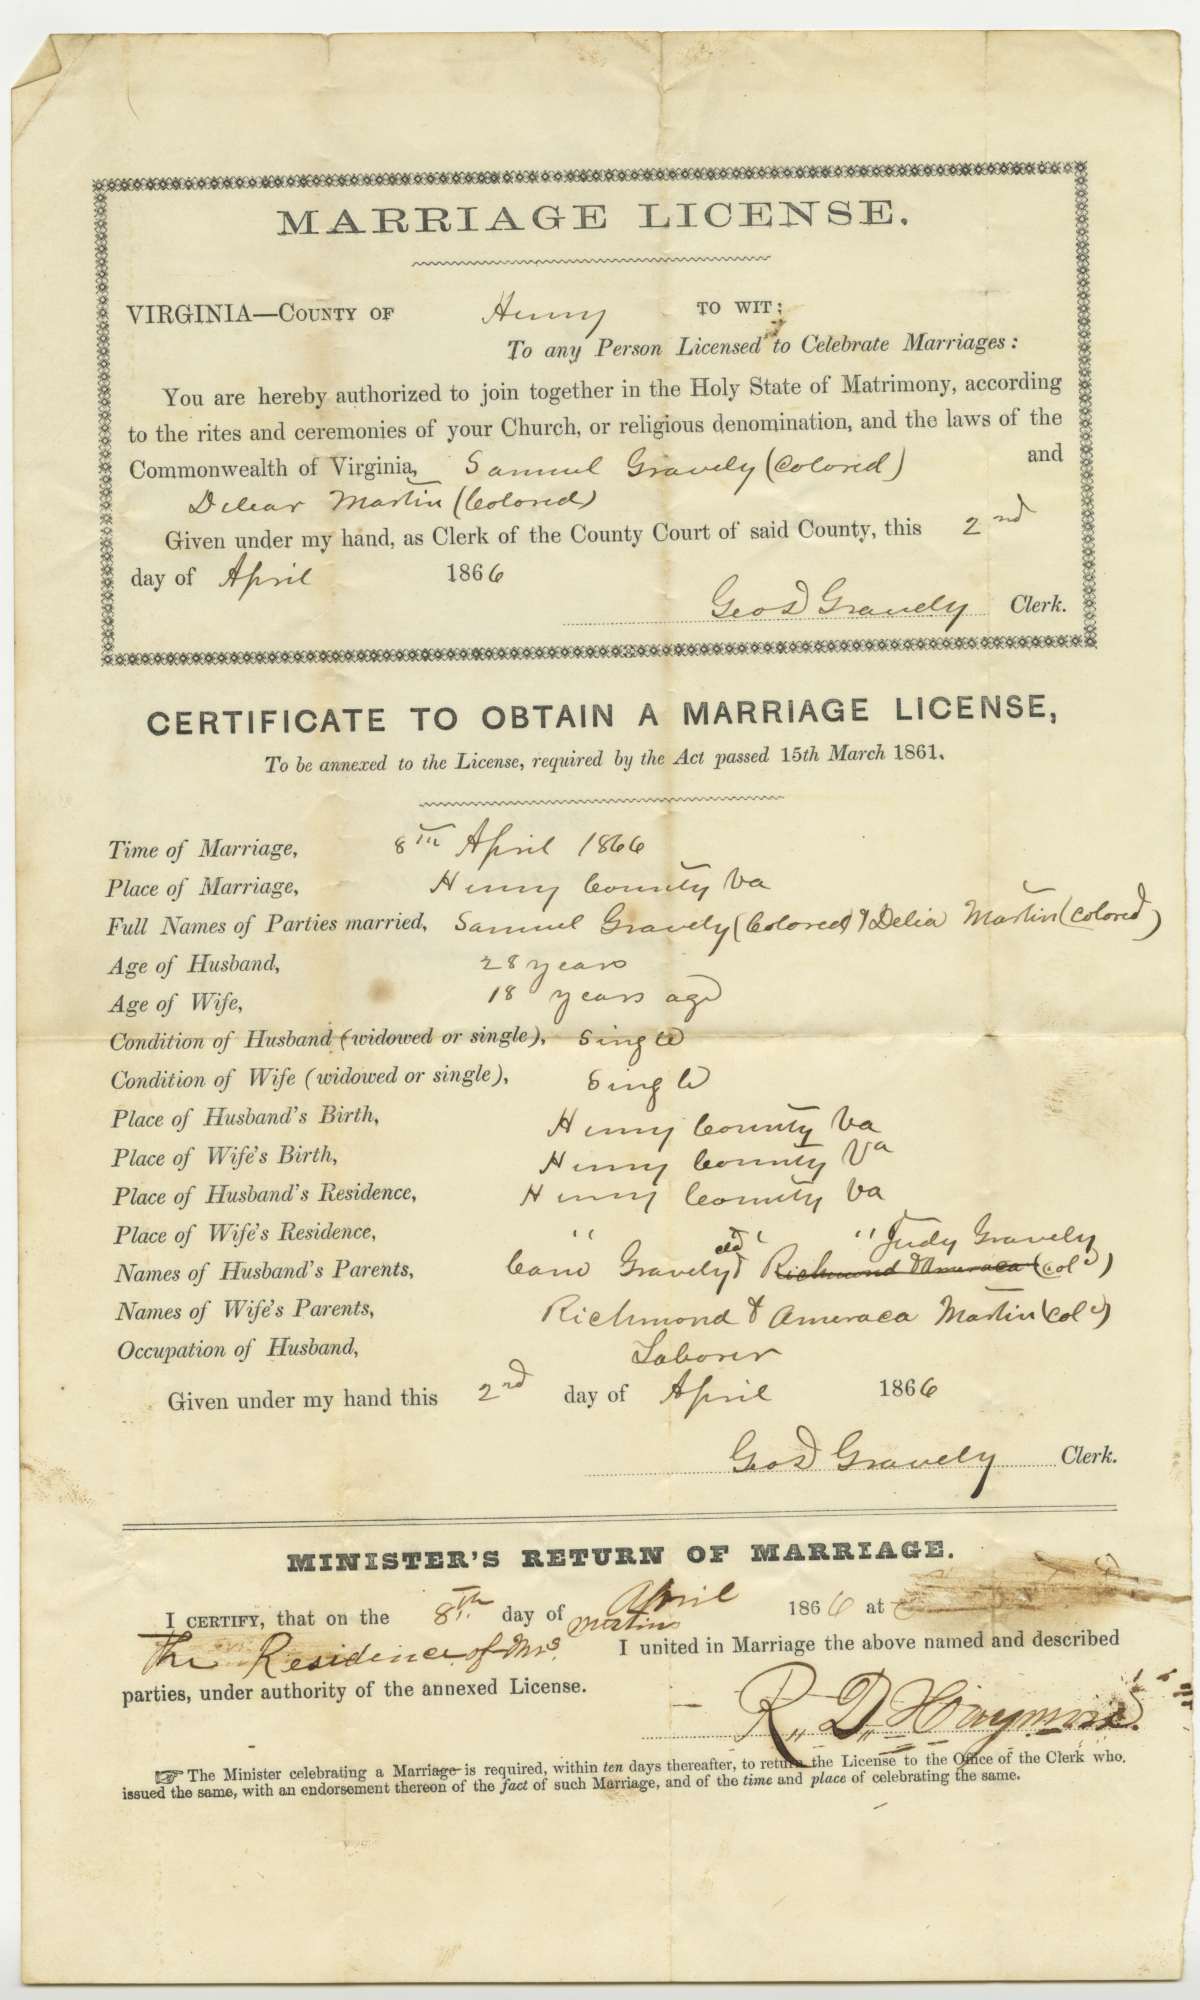 MARRIAGE LICENSE.
VIRGINIA—COUNTY OF Henry TO WIT:
To any Person Licensed to Celebrate Marriages:
You are hereby authorized to join together in the Holy State of Matrimony, according
to the rites and ceremonies of your Church, or religious denomination, and the laws of the
Commonwealth of Virginia, Samuel Gravely (Colored) and
Delear Martin (Colored)
Given under my hand, as Clerk of the County Court of said County, this 2nd
day of April 1866
Geo D Gravely Clerk.
CERTIFICATE TO OBTAIN A MARRIAGE LICENSE,
To be annexed to the License, required by the Act passed 15th March 1861.
Time of Marriage, 8th April 1866
Place of Marriage, Henry County Va
Full Names of Parties married, Samuel Gravely (Colored) & Delia Martin (Colored)
Age of Husband, 28 years
Age of Wife, 18 years age
Condition of Husband (widowed or single), Single
Condition of Wife (widowed or single), Single
Place of Husband's Birth, Henry County Va
Place of Wife's Birth, Henry County Va
Place of Husband's Residence, Henry County Va
Place of Wife's Residence, " " "
Names of Husband's Parents, Gravely cld & Judy Gravely Richmond & Ameraca (cold)
Names of Wife's Parents, Richmond & Ameraca Martin (cold)
Occupation of Husband, Laborer
Given under my hand this 2nd day of April 1866
Geo D Gravely Clerk.
MINISTER'S RETURN OF MARRIAGE.
I CERTIFY, that on the 8th day of April 1866 at
The Residence of Mrs. Martins I united in Marriage the above named and described
parties, under authority of the annexed License.
R. D. Haymore
☞ The Minister celebrating a Marriage is required, within ten days thereafter, to return the License to the Office of the Clerk who
issued the same, with an endorsement thereon of the fact of such Marriage, and of the time and place of celebrating the same.